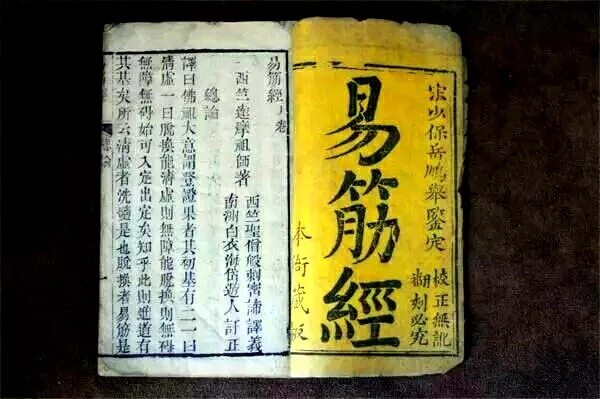 宋少保岳鵬舉鑒定
校正無訛
翻刻必究
易筋經
本衙藏版
易筋經上卷
西竺達摩祖師著
西竺聖僧般刺密諦譯義
南洲白衣海岱遊人訂正
總論
譯曰佛祖大意謂登證果者其初基有二一曰
清虛一曰脫換能清虛則無障能脫換則無碍
無障無碍始可入定出定矣知乎此則進道有
其基矣所云清虛者洗髓是也脫換者易筋是